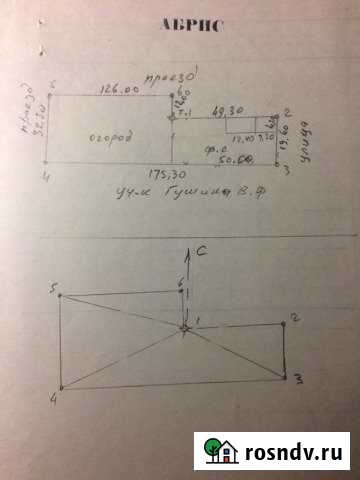 АБРИС
проезд
5 126.00 6
12.60
проезд
32.20
т.1 49,30 2
огород
12,40 9,20
4,20
19,60
улица
ф.с
50.60
4 175,30 3
уч-к Гущина В.Ф
С
5 6
1 2
3
4
rosndv.ru